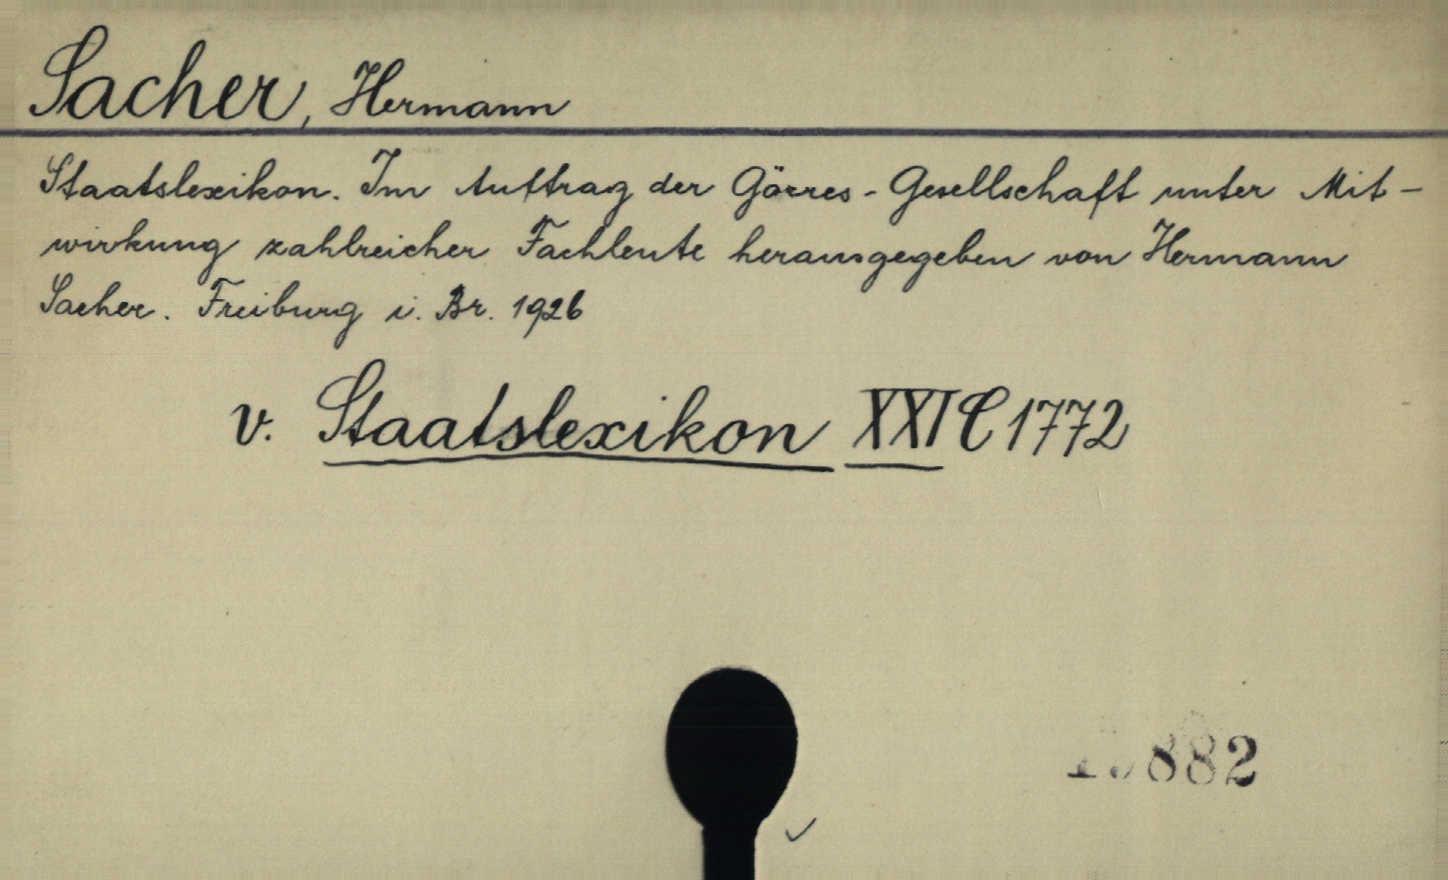 Sacher, Hermann
Staatslexikon. Im Auftrag der Görres-Gesellschaft unter Mit-
wirkung zahlreicher Fachleute herausgegeben von Hermann
Sacher. Freiburg i. Br. 1926
v. Staatslexikon XXI C 1772